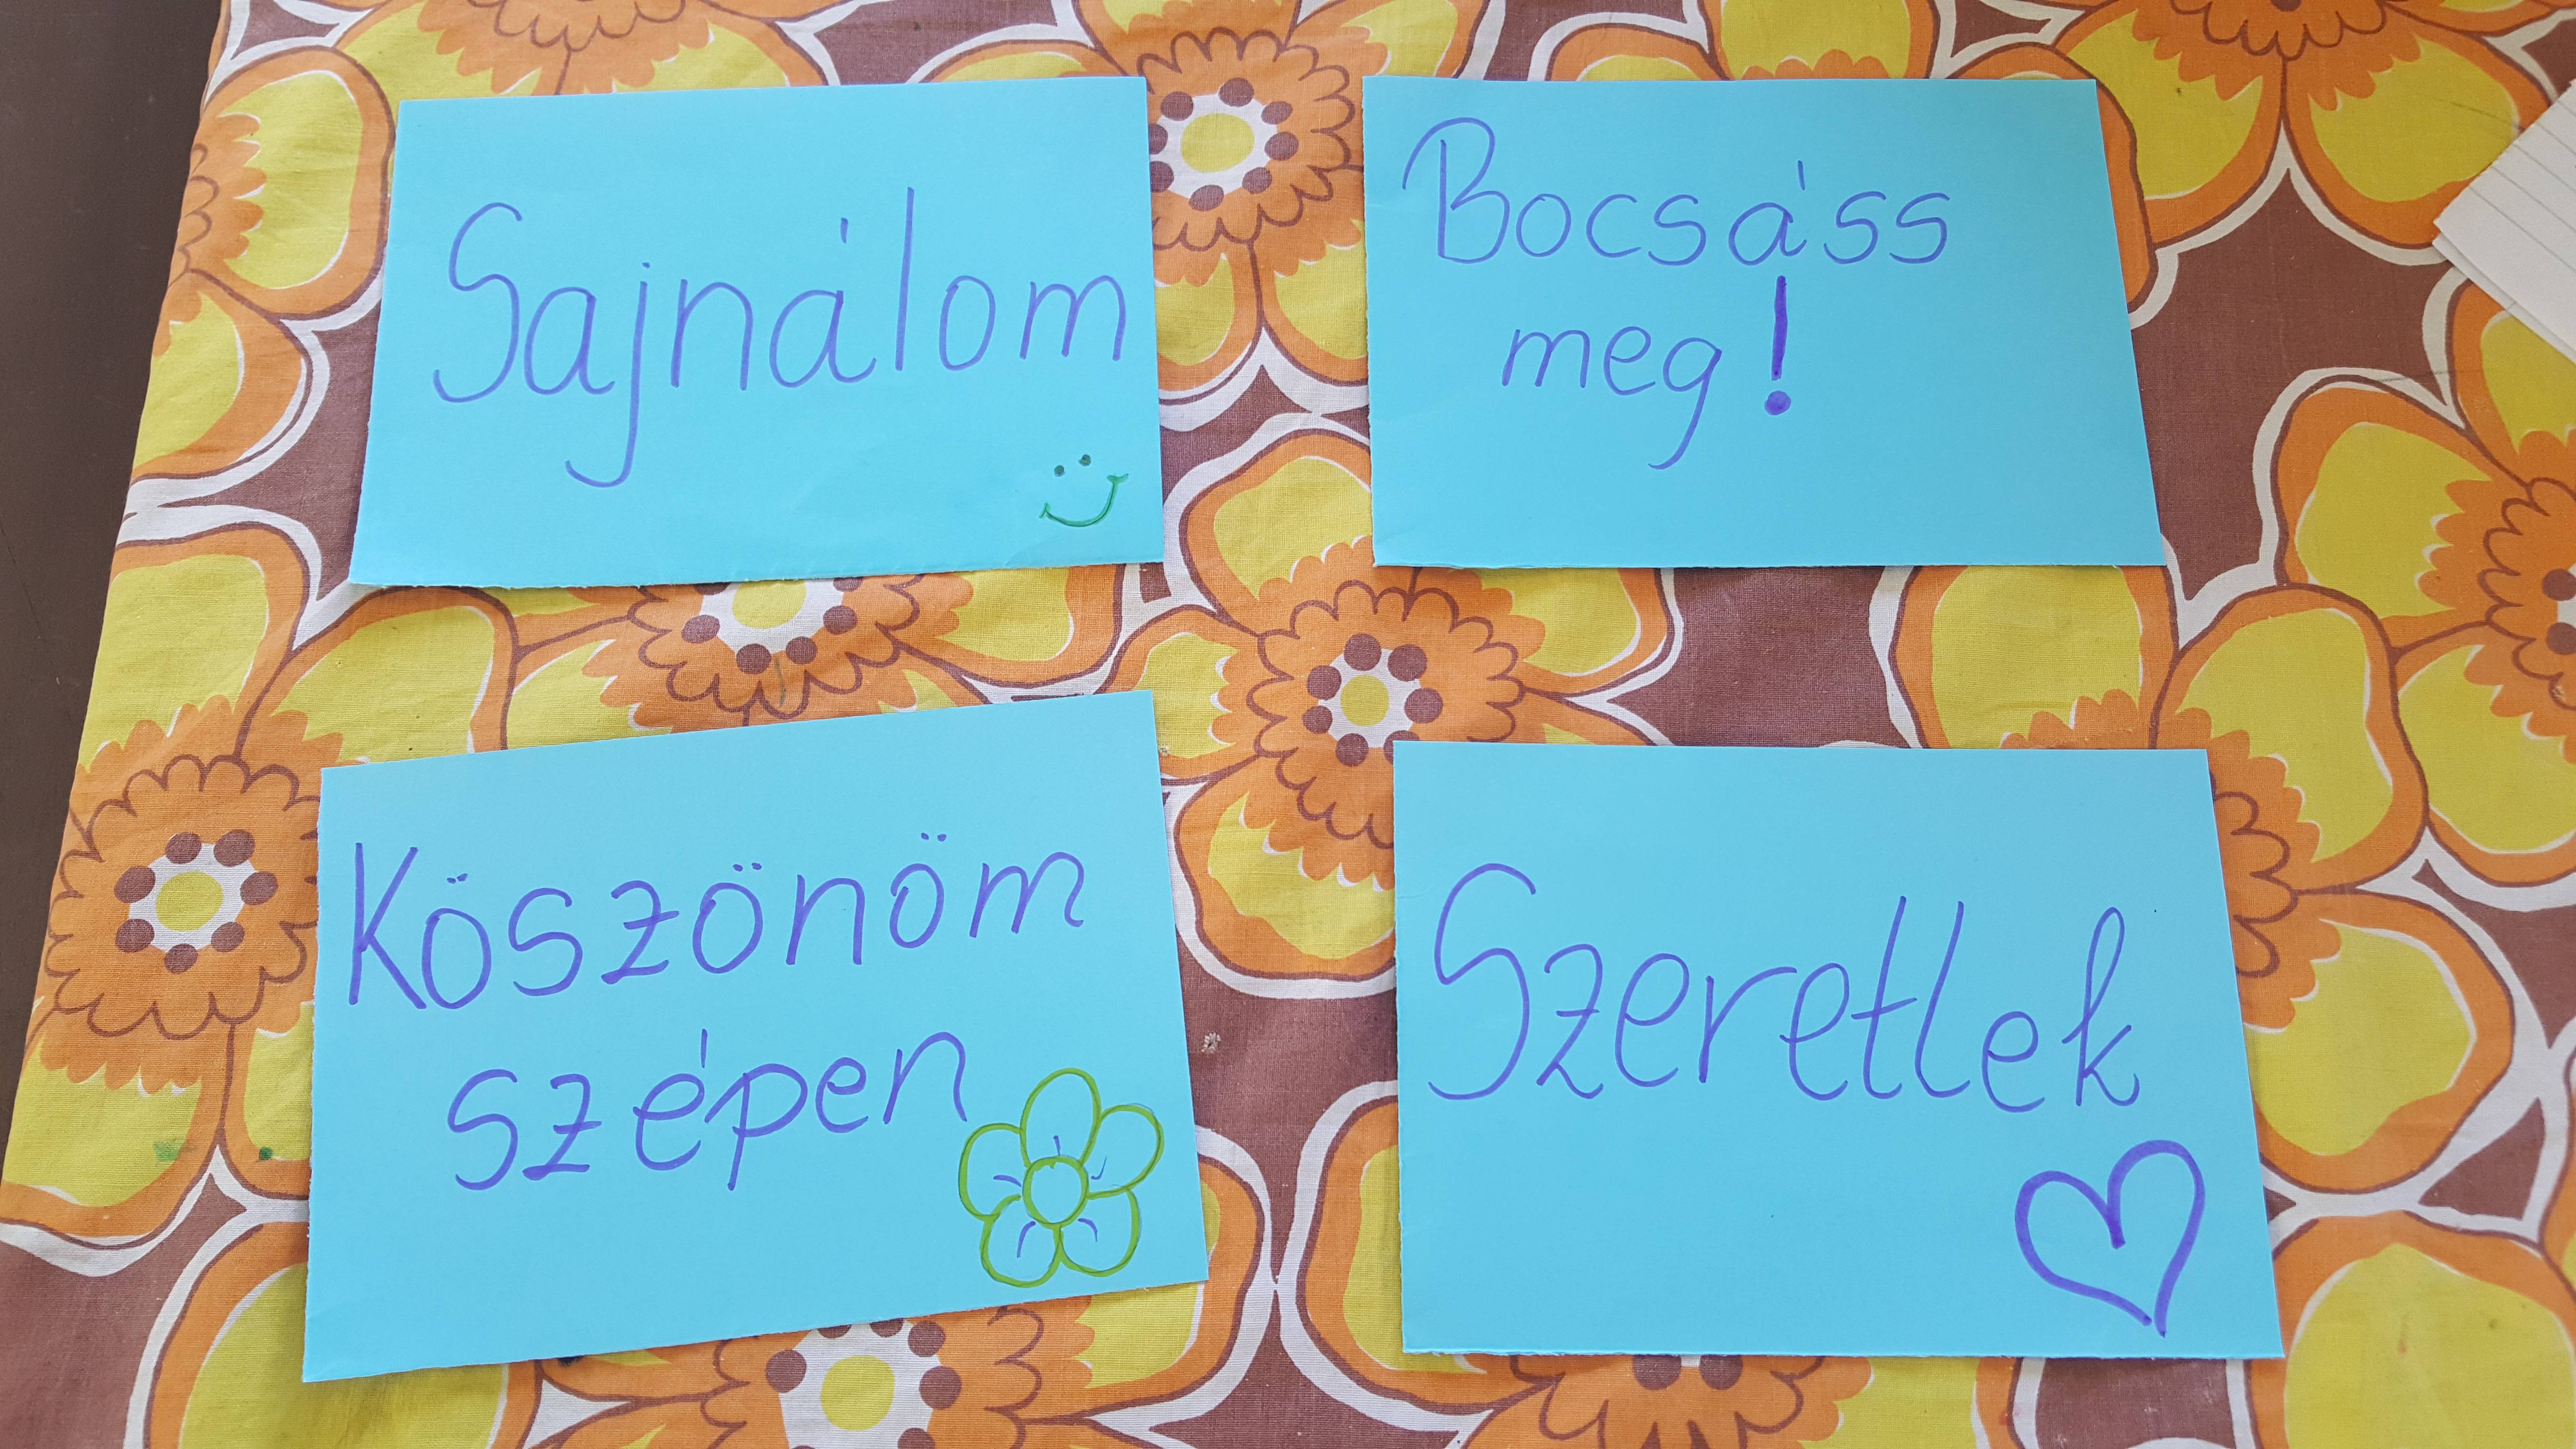 Sajnálom
Bocsáss
meg!
Köszönöm
szépen
Szeretlek